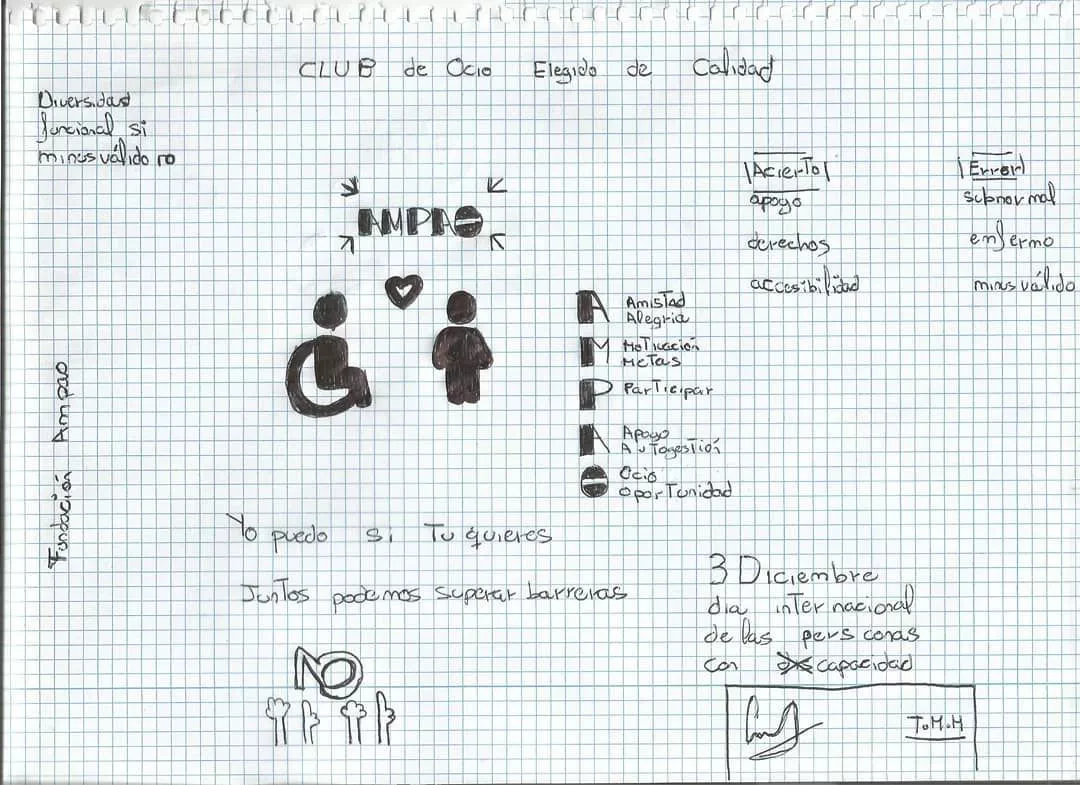 CLUB de Ocio Elegido de Calidad
Diversidad
funcional si
minusválido no
AMPAO
|Acierto|
apoyo
derechos
accesibilidad
|Error|
subnormal
enfermo
minusválido
A Amistad
Alegria
M Motivación
Metas
P Participar
A Apoyo
Autogestión
O Ocio
oportunidad
Fundación Ampao
Yo puedo si Tu quieres
Juntos podemos superar barreras
3 Diciembre
dia internacional
de las persconas
con capacidad
NO
T.M.M